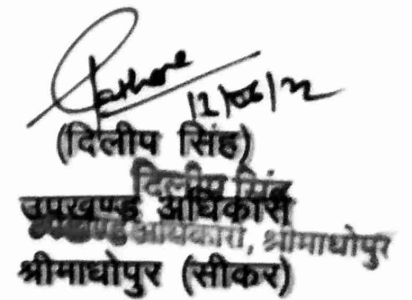 12/06/22
(दिलीप सिंह)
दिलीप सिंह
उपखण्ड अधिकारी
उपखण्ड अधिकारी, श्रीमाधोपुर
श्रीमाधोपुर (सीकर)